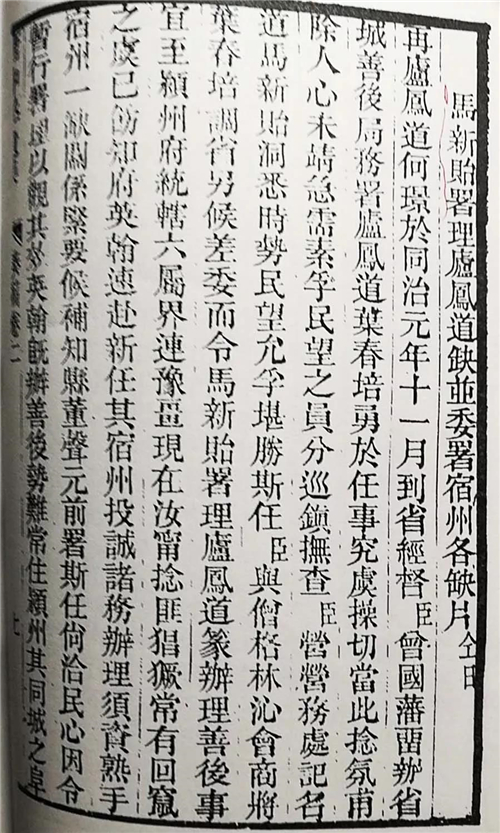 馬新貽署理廬鳳道缺並委署宿州各缺片 仝日
再廬鳳道何璟於同治元年十一月到省經督臣曾國藩畱辦省
城善後局務署廬鳳道葉春培勇於任事究虞操切當此捻氛甫
除人心未靖急需素孚民望之員分巡鎭撫查臣營營務處記名
道馬新貽洞悉時勢民望允孚堪勝斯任臣與僧格林沁會商將
葉春培調省另候差委而令馬新貽署理廬鳳道篆辦理善後事
宜至潁州府統轄六屬界連豫畺現在汝甯捻匪猖獗常有回竄
之虞已飭知府英翰速赴新任其宿州投誠諸務辦理須資熟手
宿州一缺關係緊要候補知縣董聲元前署斯任尙洽民心因令
暫行署理以觀其後英翰旣辦善後勢難常住潁州其同城之阜
奏稿卷二